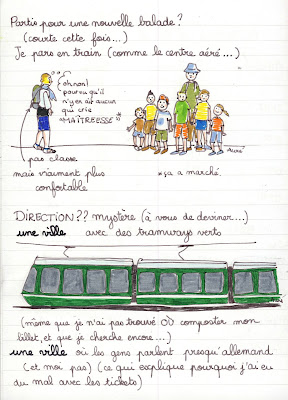 Partis pour une nouvelle balade ?
(courte cette fois...)
Je pars en train (comme le centre aéré...)
oh non!
pourvu qu'il
n'y en ait aucun
qui crie
"MAÎTREESSE"
pas classe
mais vraiment plus
confortable
*ça a marché.
DIRECTION ?? mystère (à vous de deviner...)
une ville avec des tramways verts
(même que je n'ai pas trouvé OÙ composter mon
billet, et que je cherche encore....)
une ville où les gens parlent presqu'allemand
(et moi pas) (ce qui explique pourquoi j'ai eu
du mal avec les tickets)